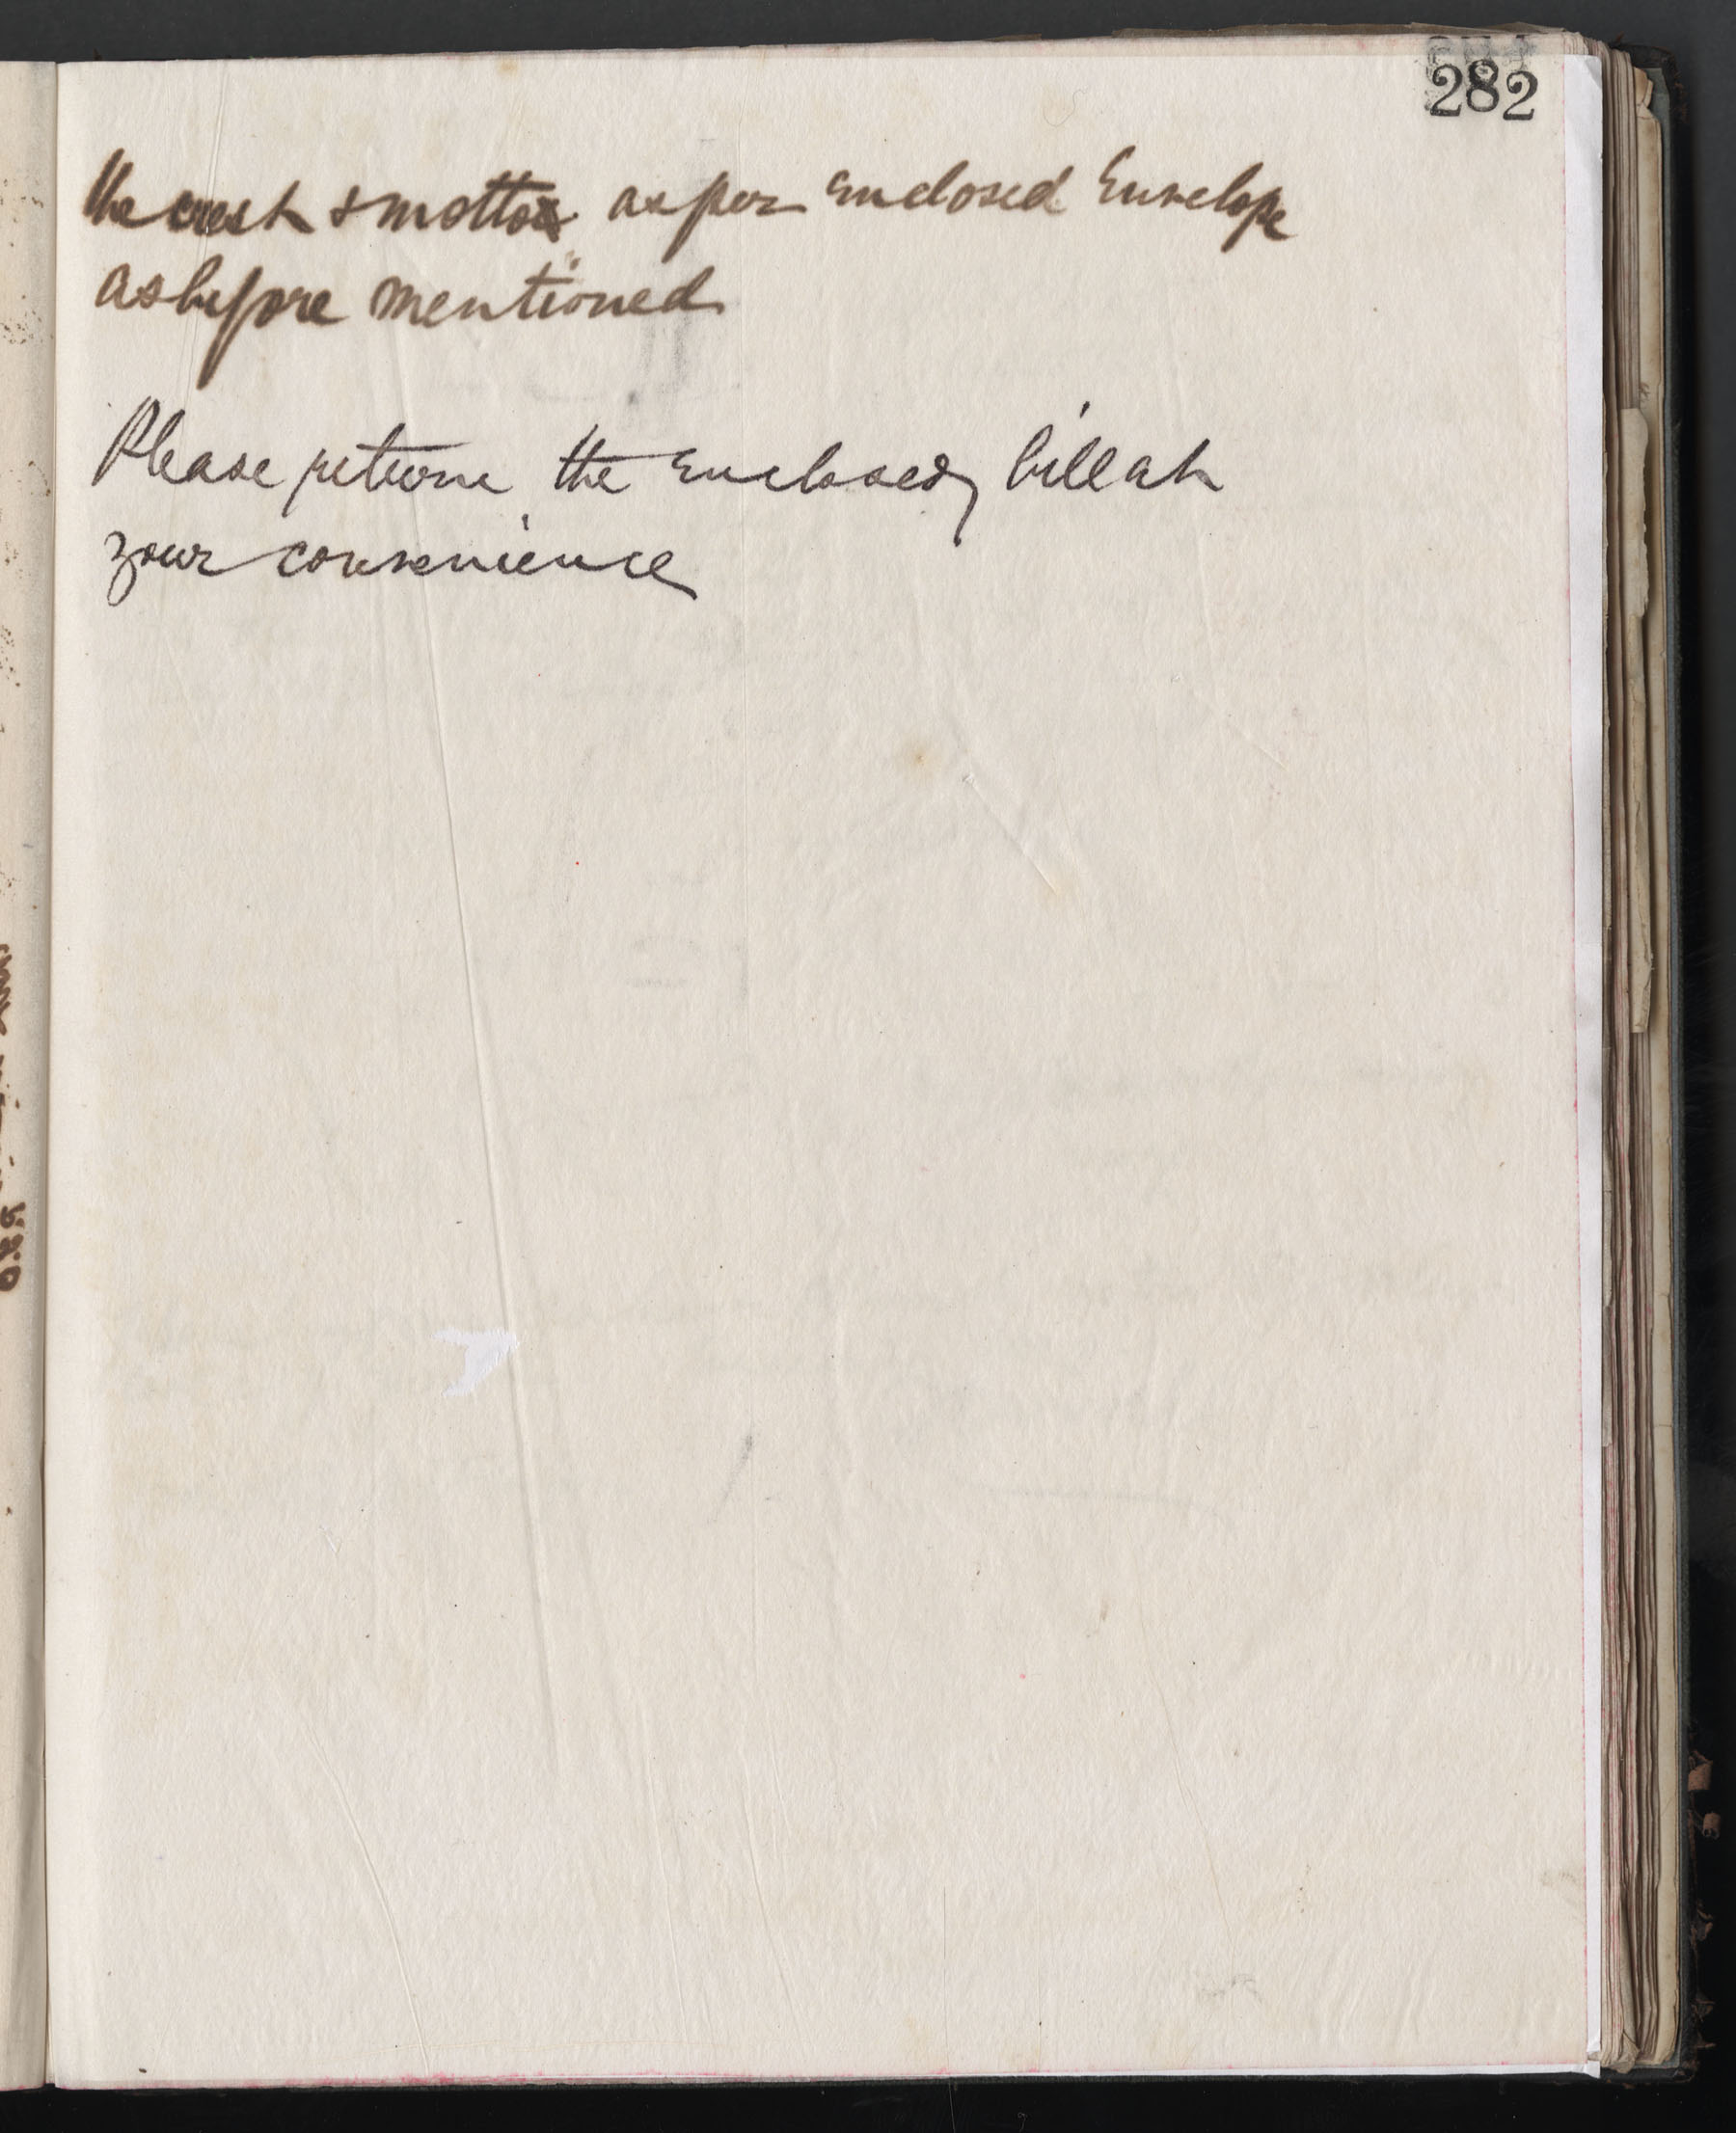 282
the crest & motto as per enclosed Envelope
as before mentioned
Please return the enclosed bill at
your convenience